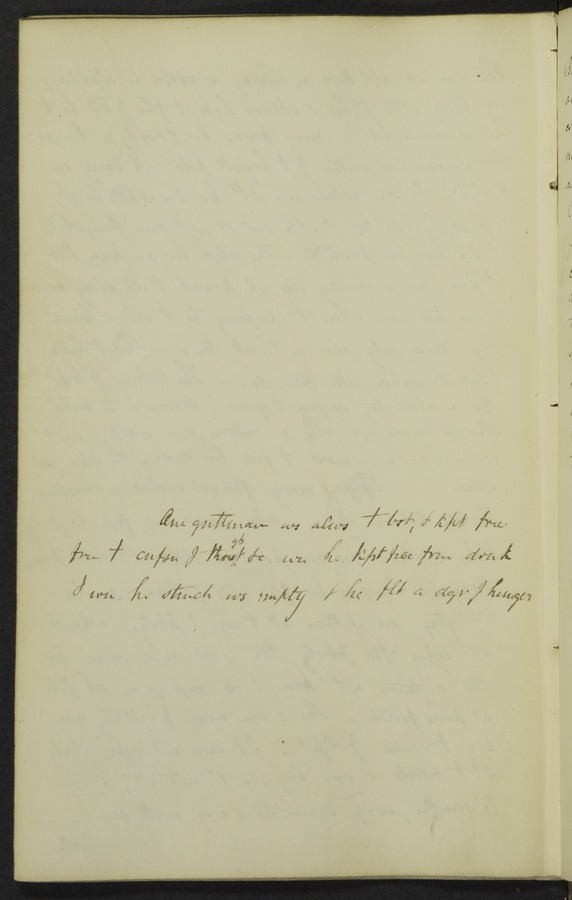 One gentleman ws alws t bot, & kpt free
from t cnfsn of thought se wn he kpt free from drink
& wn his stmch ws empty & he flt a dgr of hunger